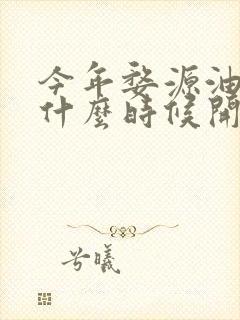 今年婺源油
什麼時候開
兮曦